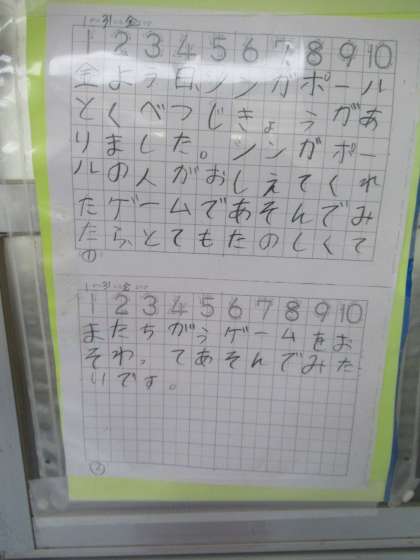 1 2 3 4 5 6 7 8 9 10
金よう日、シンガポール
とくべつじぎょうがあ
りました。シンガポー
ルの人がおしえてくれ
たゲームであそんでみ
たら、とてもたのしくて
①
1 2 3 4 5 6 7 8 9 10
またちがうゲームをお
そわってあそんでみた
いです。
②